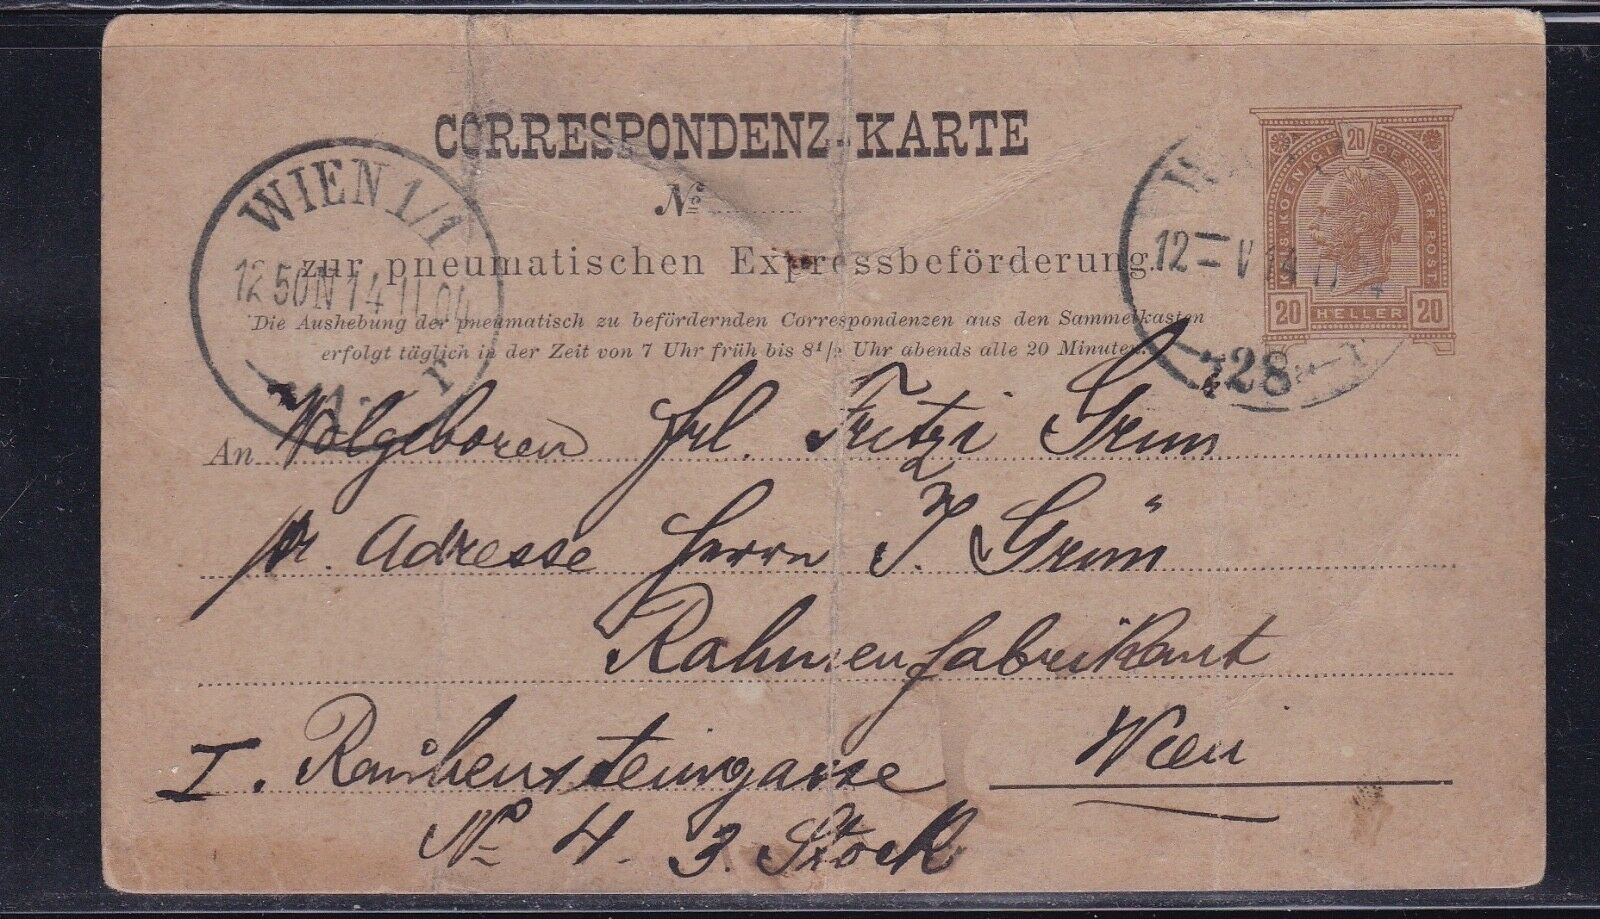 CORRESPONDENZ-KARTE
No
zur pneumatischen Expressbeförderung.
Die Aushebung der pneumatisch zu befördernden Correspondenzen aus den Sammelkasten
erfolgt täglich in der Zeit von 7 Uhr früh bis 8½ Uhr abends alle 20 Minuten.
WIEN 1/1
12 50N 14 II 04
r
KAIS. KOENIGL. OESTERR. POSTE
20
20 HELLER 20
12
28
An Wolgeboren Frl. Fritzi Grün
pr. Adresse Herrn J. Grün
Rahmenfabrikant
I. Rauhensteingasse Wien
No 4 3. Stock